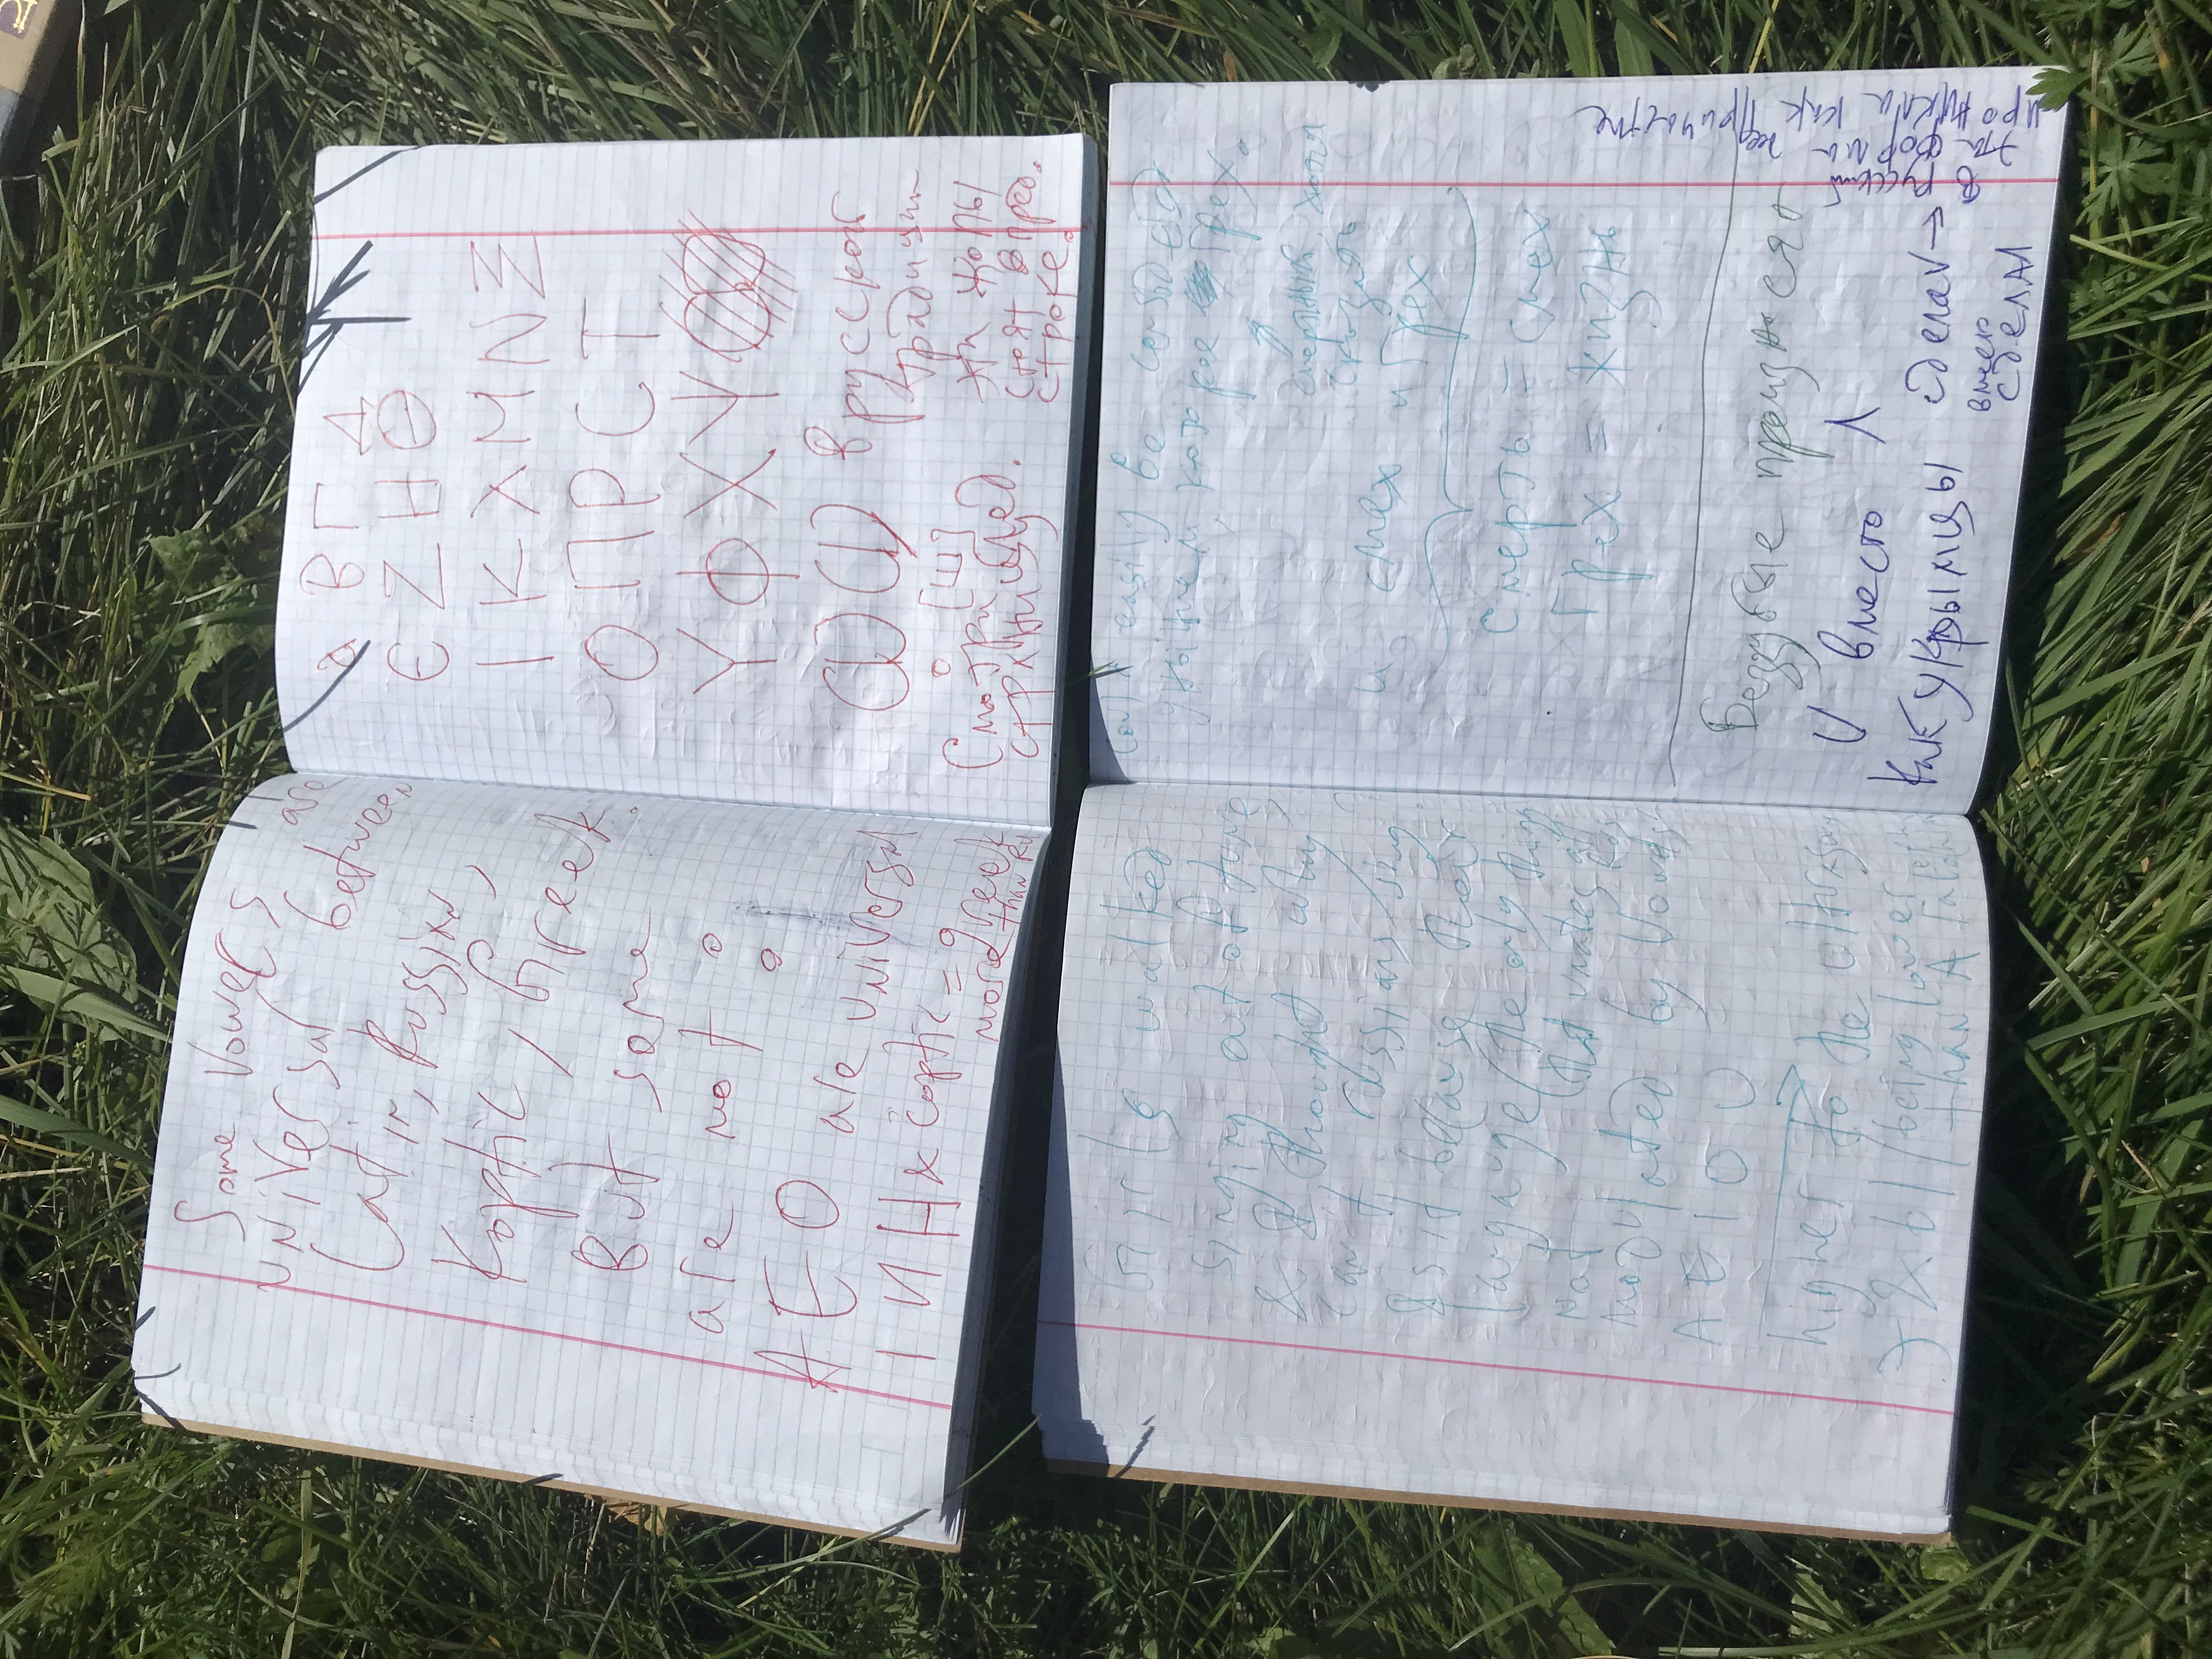 Some Vowels are
universal between
Latin, Russian,
Koptic, Greek.
But some
are not:
A E O are universal
I И H & coptic = greek
more than Ru
а В Г Д
Є Z H Θ
I K λ M N Ξ
О П Р С Т
Y Ф X Ψ
в русской
традиции
эти жопы
стоят в пред.
строке.
[Ш]
Смотри след.
страницу
Girls walked
singing out of tune,
& I thought why
can't russians sing?
Is it because their
language (the only thing
that unates all Rus
not
modylated by Vowels?
A E I O U
higher to the
Э & Ы being lower
than A
could easily be
унынием, которое грех.
смертный, хотя
сказать
и смех и Грех
смерть = смех
Грех = жизнь
Беззубые произносят
V вместо Л
Как укрымцы
сделаV →
вместо
сделаЛ
В русский
эта форма же
проникла как причастие